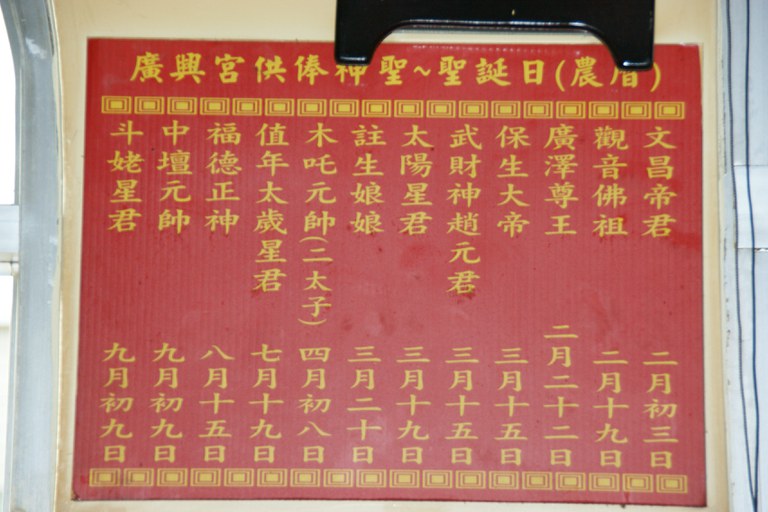 廣興宮供俸神聖~聖誕日(農曆)
文昌帝君 二月初三日
觀音佛祖 二月十九日
廣澤尊王 二月二十二日
保生大帝 三月十五日
武財神趙元君 三月十五日
太陽星君 三月十九日
註生娘娘 三月二十日
木吒元帥(二太子) 四月初八日
值年太歲星君 七月十九日
福德正神 八月十五日
中壇元帥 九月初九日
斗姥星君 九月初九日